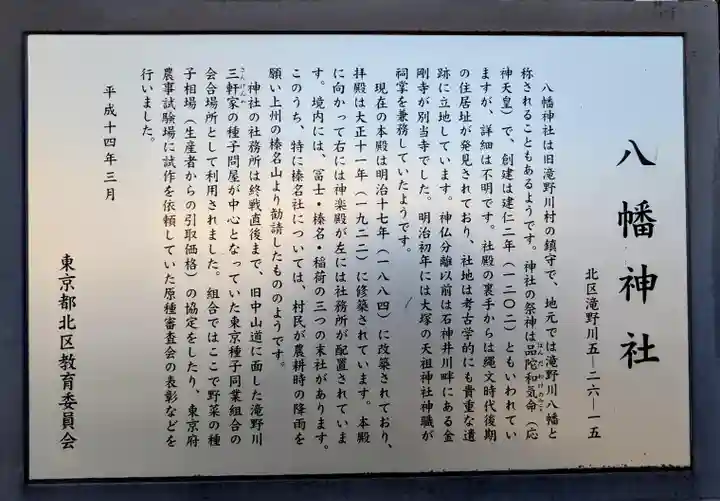 八幡神社
北区滝野川五―二六―一五
八幡神社は旧滝野川村の鎮守で、地元では滝野川八幡と
称されることもあるようです。神社の祭神は品陀和気命（応
ほんだわけのみこと
神天皇）で、創建は建仁二年（一二〇二）ともいわれてい
ますが、詳細は不明です。社殿の裏手からは縄文時代後期
の住居址が発見されており、社地は考古学的にも貴重な遺
跡に立地しています。神仏分離以前は石神井川畔にある金
剛寺が別当寺でした。明治初年には大塚の天祖神社神職が
祠掌を兼務していたようです。
現在の本殿は明治十七年（一八八四）に改築されており、
拝殿は大正十一年（一九二二）に修築されています。本殿
に向かって右には神楽殿が左には社務所が配置されていま
す。境内には、冨士・榛名・稲荷の三つの末社があります。
このうち、特に榛名社については、村民が農耕時の降雨を
願い上州の榛名山より勧請したもののようです。
神社の社務所は終戦直後まで、旧中山道に面した滝野川
三軒家の種子問屋が中心となっていた東京種子同業組合の
さんげんや
会合場所として利用されました。組合ではここで野菜の種
子相場（生産者からの引取価格）の協定をしたり、東京府
農事試験場に試作を依頼していた原種審査会の表彰などを
行いました。
平成十四年三月
東京都北区教育委員会